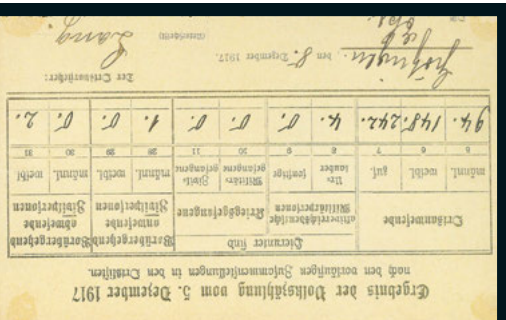 Ergebnis der Volkszählung vom 5. Dezember 1917
nach den vorläufigen Zusammenstellungen in den Ortslisten.
Ortsanwesende Hierunter sind Vorübergehend anwesende Zivilpersonen Vorübergehend abwesende Zivilpersonen
Militärpersonen Kriegsgefangene
männl. weibl. zus. Ur-lauber sonstige Militär-gefangene Zivil-gefangene männl. weibl. männl. weibl.
5 6 7 8 9 10 11 28 29 30 31
94. 148. 242. 4. 0. 0. 0. 1. 0. 0. 2.
den 8. Dezember 1917.
Der Ortsvorsteher:
(Unterschrift) Lang.